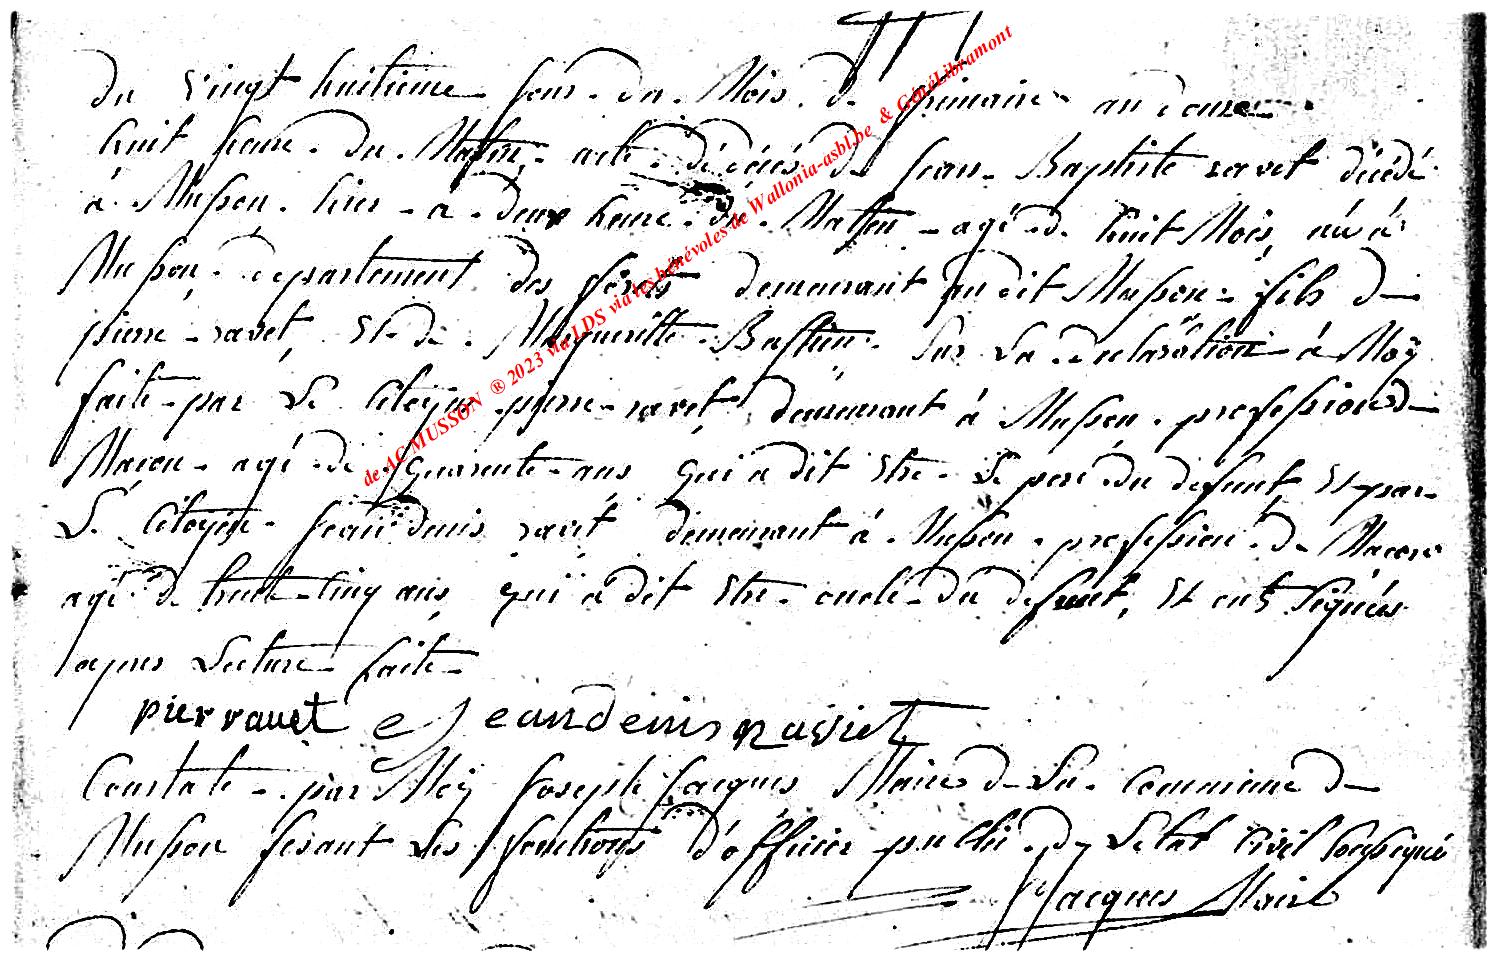 du vingt huitieme jour du Mois de frimaire an douze
huit heure du Matin acte de décés de jean Baptiste ravet décédé
à Musson hier a deux heure de Matin agé de huit Mois, né à
Musson departement des forets demeurant au dit Musson fils de
pierre ravet, Et de Margueritte Bastin. Sur La declaration à Moÿ
faite par Le Citoyen pierre ravet demeurant à Musson profession de
Macon agé de quarente ans qui a dit Etre Le pere du defunt, Et par
Le Citoyen jean denis ravet demeurant à Musson profession de Macon
agé de trente Cinq ans, qui a dit Etre oncle du defunt, Et ont Signées
apres Lecture faite
pier ravet e Jeandenis ravet
Constate par Moÿ joseph jacques Maire de La Commune de
Musson fesant Les fonctions d'officier public de Letat Civil Soussigné
J Jacques Maire
de AC MUSSON ® 2023 via LDS via les bénévoles de Wallonia-asbl.be & GénéLibramont